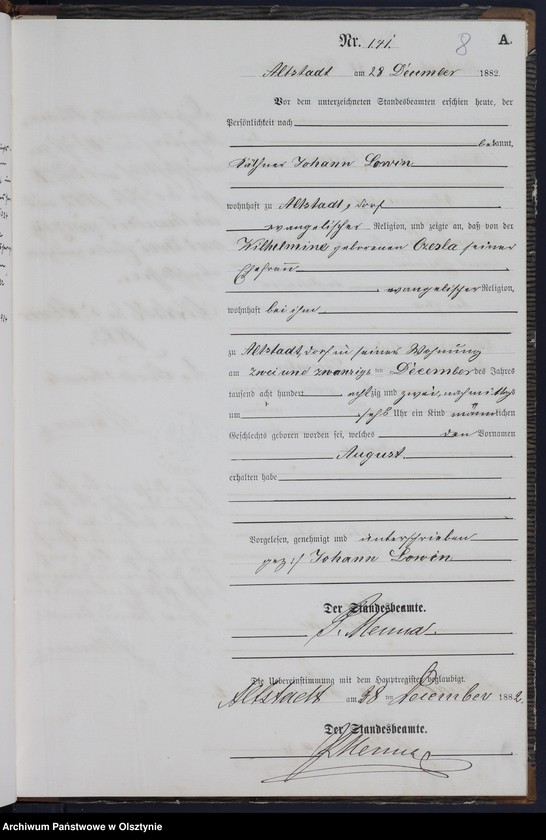 Nr. 141. 8 A.
Altstadt am 28 December 1882.
Vor dem unterzeichneten Standesbeamten erschien heute, der
Persönlichkeit nach
bekannt,
Käthner Johann Lowin
wohnhaft zu Altstadt, dorf
evangelischer Religion, und zeigte an, daß von der
Wilhelmine geborenen Czesla seiner
Ehefrau
evangelischer Religion,
wohnhaft bei ihm
zu Altstadt, dorf in seiner Wohnung
am zwei und zwanzigs ten December des Jahres
tausend acht hundert achtzig und zwei, nachmittags
um sechs Uhr ein Kind männlichen
Geschlechts geboren worden sei, welches den Vornamen
August
erhalten habe
Vorgelesen, genehmigt und unterschrieben
gez:/ Johann Lowin
Der Standesbeamte.
Menna.
Die Uebereinstimmung mit dem Hauptregister beglaubigt.
Altstadt am 28 ten December 1882.
Der Standesbeamte.
Menna
Archiwum Państwowe w Olsztynie